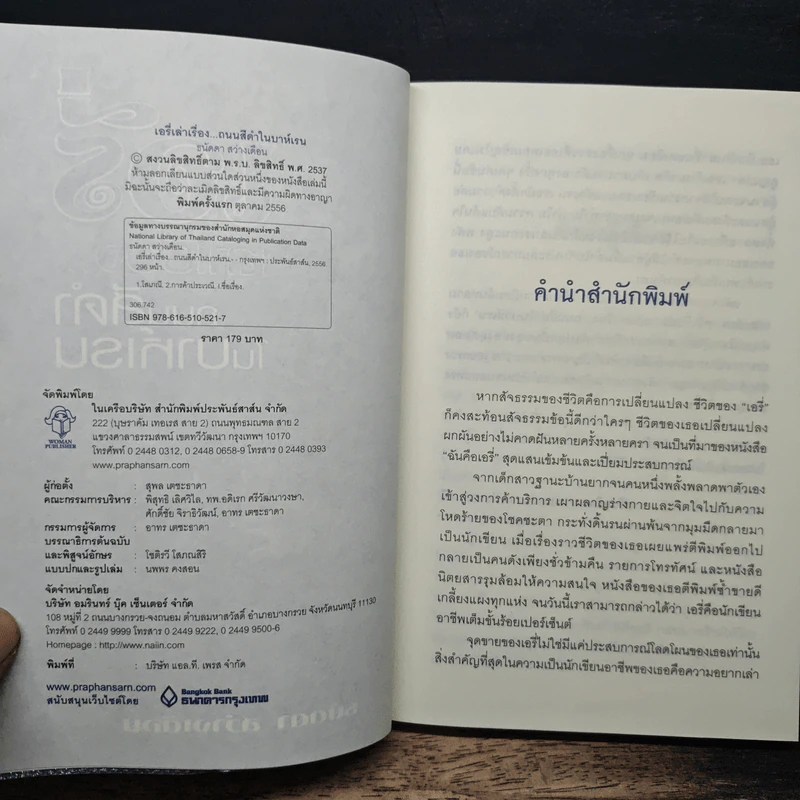 เอรี่เล่าเรื่อง...ถนนสีดำในบาห์เรน
ธนัดดา สว่างเดือน
© สงวนลิขสิทธิ์ตาม พ.ร.บ. ลิขสิทธิ์ พ.ศ. 2537
ห้ามลอกเลียนแบบส่วนใดส่วนหนึ่งของหนังสือเล่มนี้
มิฉะนั้นจะถือว่าละเมิดลิขสิทธิ์และมีความผิดทางอาญา
พิมพ์ครั้งแรก ตุลาคม 2556
ข้อมูลทางบรรณานุกรมของสำนักหอสมุดแห่งชาติ
National Library of Thailand Cataloging in Publication Data
ธนัดดา สว่างเดือน.
เอรี่เล่าเรื่อง...ถนนสีดำในบาห์เรน.- - กรุงเทพฯ : ประพันธ์สาส์น, 2556
296 หน้า.
1.โสเภณี. 2.การค้าประเวณี. I.ชื่อเรื่อง.
306.742
ISBN 978-616-510-521-7
ราคา 179 บาท
จัดพิมพ์โดย
WOMAN
PUBLISHER
ในเครือบริษัท สำนักพิมพ์ประพันธ์สาส์น จำกัด
222 (บุษราคัม เทอเรส สาย 2) ถนนพุทธมณฑล สาย 2
แขวงศาลาธรรมสพน์ เขตทวีวัฒนา กรุงเทพฯ 10170
โทรศัพท์ 0 2448 0312, 0 2448 0658-9 โทรสาร 0 2448 0393
www.praphansarn.com
ผู้ก่อตั้ง : สุพล เตชะธาดา
คณะกรรมการบริหาร : พิสุทธิ์ เลิศวิไล, ทพ.อติเรก ศรีวัฒนาวงษา,
ศักดิ์ชัย จิราธิวัฒน์, อาทร เตชะธาดา
กรรมการผู้จัดการ : อาทร เตชะธาดา
บรรณาธิการต้นฉบับ
และพิสูจน์อักษร : โชติรวี โสภณสิริ
แบบปกและรูปเล่ม : นพพร คงสอน
จัดจำหน่ายโดย
บริษัท อมรินทร์ บุ๊ค เซ็นเตอร์ จำกัด
108 หมู่ที่ 2 ถนนบางกรวย-จงถนอม ตำบลมหาสวัสดิ์ อำเภอบางกรวย จังหวัดนนทบุรี 11130
โทรศัพท์ 0 2449 9999 โทรสาร 0 2449 9222, 0 2449 9500-6
Homepage : http://www.naiin.com
พิมพ์ที่ : บริษัท แอล.ที. เพรส จำกัด
www.praphansarn.com
สนับสนุนเว็บไซต์โดย
Bangkok Bank
ธนาคารกรุงเทพ
คำนำสำนักพิมพ์
หากสัจธรรมของชีวิตคือการเปลี่ยนแปลง ชีวิตของ “เอรี่”
ก็คงสะท้อนสัจธรรมข้อนี้ดีกว่าใครๆ ชีวิตของเธอเปลี่ยนแปลง
ผกผันอย่างไม่คาดฝันหลายครั้งหลายครา จนเป็นที่มาของหนังสือ
“ฉันคือเอรี่” สุดแสนเข้มข้นและเปี่ยมประสบการณ์
จากเด็กสาวฐานะบ้านยากจนคนหนึ่งพลั้งพลาดพาตัวเอง
เข้าสู่วงการค้าบริการ เผาผลาญร่างกายและจิตใจไปกับความ
โหดร้ายของโชคชะตา กระทั่งดิ้นรนผ่านพ้นจากมุมมืดกลายมา
เป็นนักเขียน เมื่อเรื่องราวชีวิตของเธอเผยแพร่ตีพิมพ์ออกไป
กลายเป็นคนดังเพียงชั่วข้ามคืน รายการโทรทัศน์ และหนังสือ
นิตยสารรุมล้อมให้ความสนใจ หนังสือของเธอตีพิมพ์ซ้ำขายดี
เกลี้ยงแผงทุกแห่ง จนวันนี้เราสามารถกล่าวได้ว่า เอรี่คือนักเขียน
อาชีพเต็มขั้นร้อยเปอร์เซ็นต์
จุดขายของเอรี่ไม่ใช่มีแค่ประสบการณ์โลดโผนของเธอเท่านั้น
สิ่งสำคัญที่สุดในความเป็นนักเขียนอาชีพของเธอคือความอยากเล่า